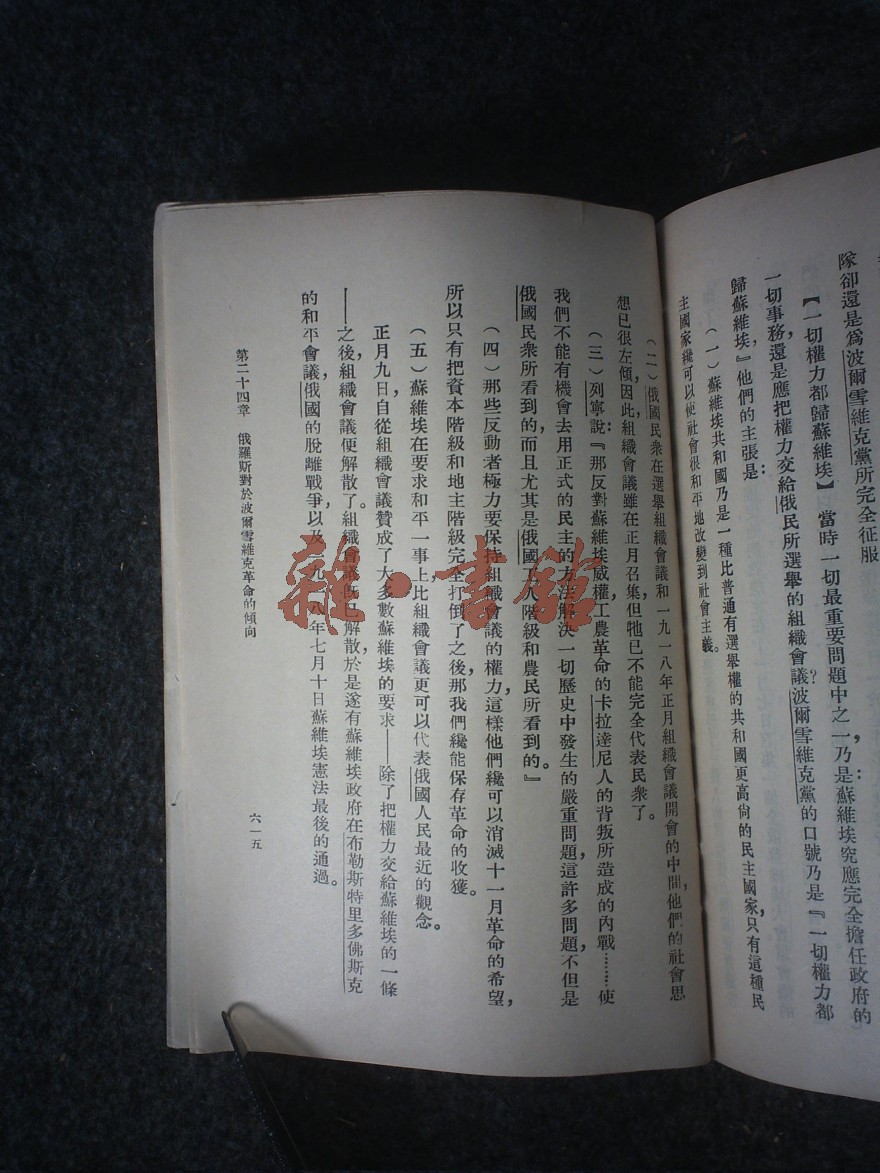 隊卻還是爲波爾雪維克黨所完全征服
【一切權力都歸蘇維埃】當時一切最重要問題中之一，乃是：蘇維埃究應完全擔任政府的
一切事務，還是應把權力交給俄民所選舉的組織會議？波爾雪維克黨的口號乃是『一切權力都
歸蘇維埃，』他們的主張是：
（一）蘇維埃共和國乃是一種比普通有選舉權的共和國更高尚的民主國家，只有這種民
主國家纔可以使社會很和平地改變到社會主義。
（二）俄國民衆在選舉組織會議和一九一八年正月組織會議開會的中間，他們的社會思
想已很左傾，因此，組織會議雖在正月召集，但牠已不能完全代表民衆了。
（三）列寧說：『那反對蘇維埃威權工農革命的卡拉達尼人的背叛所造成的內戰……使
我們不能有機會去用正式的民主的方法解決一切歷史中發生的嚴重問題，這許多問題，不但是
俄國民衆所看到的，而且尤其是俄國工人階級和農民所看到的。』
（四）那些反動者極力要保持組織會議的權力，這樣他們纔可以消滅十一月革命的希望，
所以只有把資本階級和地主階級完全打倒了之後，那我們纔能保存革命的收獲。
（五）蘇維埃在要求和平一事上比組織會議更可以代表俄國人民最近的觀念。
正月九日，自從組織會議贊成了大多數蘇維埃的要求——除了把權力交給蘇維埃的一條
——之後，組織會議便解散了。組織會議既已解散，於是遂有蘇維埃政府在布勒斯特里多佛斯克
的和平會議，俄國的脫離戰爭，以及一九一八年七月十日蘇維埃憲法最後的通過。
第二十四章 俄羅斯對於波爾雪維克革命的傾向
六一五
雜·書館